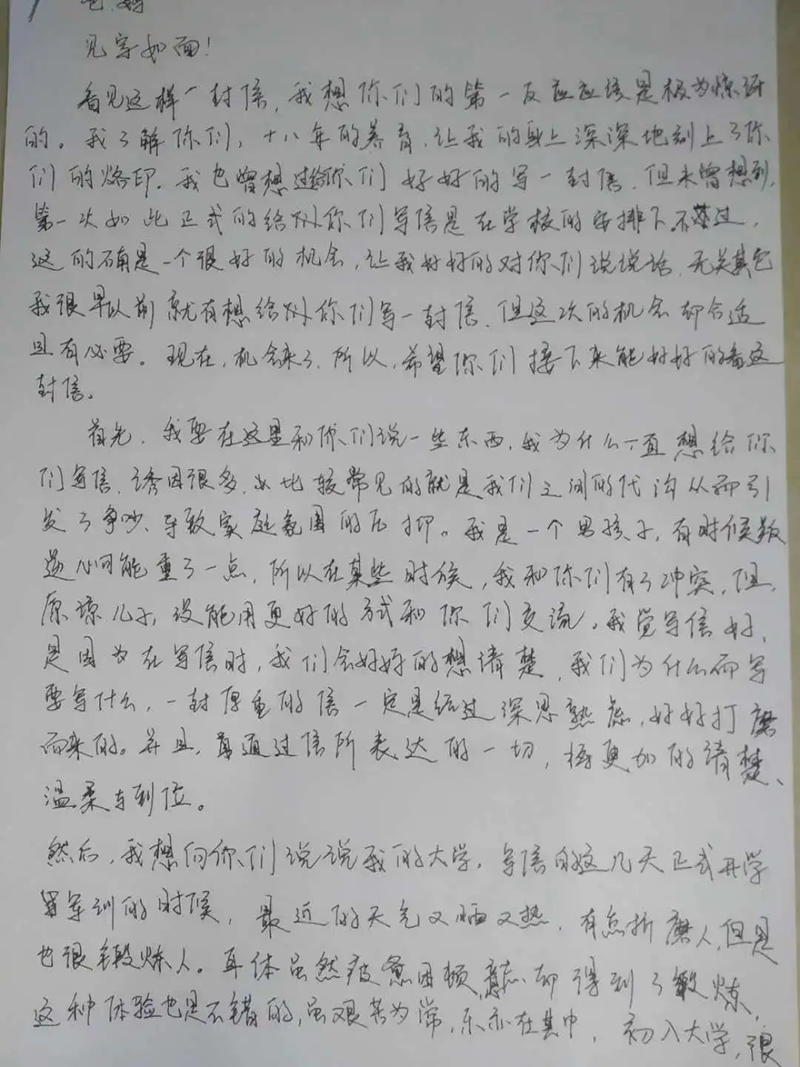 爸.妈
见字如面!
看见这样一封信,我想你们的第一反应应该是极为惊讶
的。我了解你们,十八年的养育,让我的身上深深地刻上了你
们的烙印。我也曾想过给你们好好的写一封信,但未曾想到,
第一次如此正式的给你们写信是在学校的安排下。不过,
这的确是一个很好的机会,让我好好的对你们说说话,无关其它
我很早以前就有想给你们写一封信,但这次的机会却合适
且有必要。现在,机会来了,所以,希望你们接下来能好好的看这
封信。
首先,我要在这里和你们说一些东西,我为什么一直想给你
们写信,诱因很多,比较常见的就是我们之间的代沟从而引
发了争吵、导致家庭氛围的压抑。我是一个男孩子,有时候叛
逆心可能重了一点,所以在某些时候,我和你们有了冲突,但,
原谅儿子,没能用更好的方式和你们交流。我觉写信好,
是因为在写信时,我们会好好的想清楚,我们为什么而写
要写什么,一封厚重的信一定是经过深思熟虑,好好打磨
而来的。并且,通过信所表达的一切,将更加的清楚、
温柔与到位。
然后,我想向你们说说我的大学,写信的这几天正式开学
军训的时候,最近的天气又晒又热,有点折磨人,但是
也很锻炼人。身体虽然疲惫困顿,意志却得到了锻炼,
这种体验也是不错的,虽艰苦为常,乐亦在其中,初入大学,很